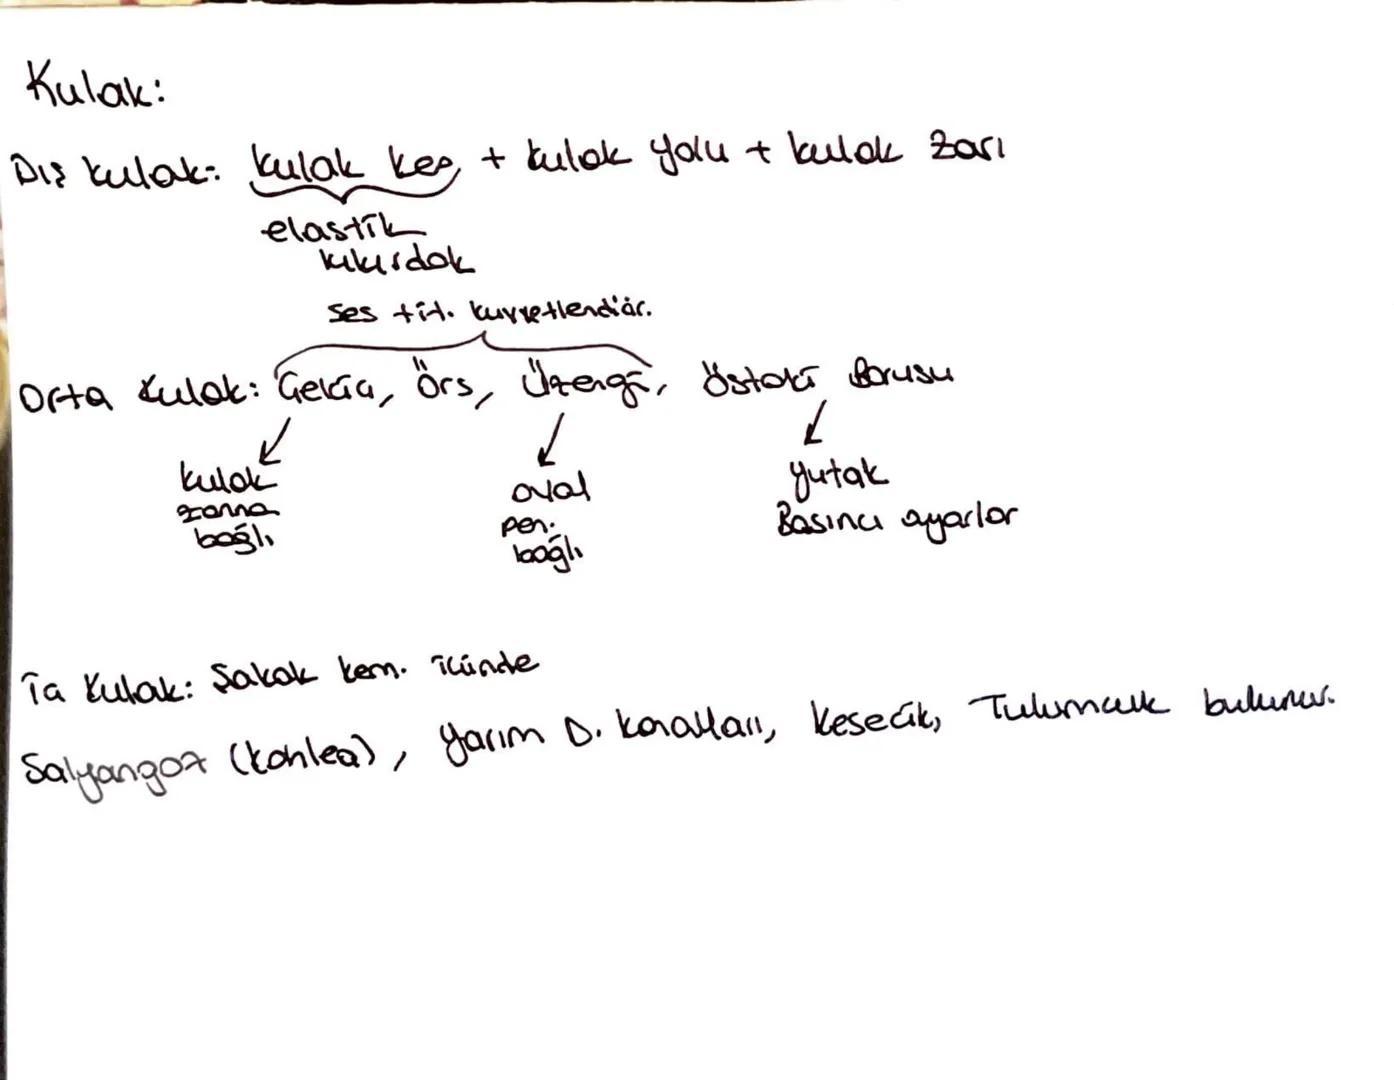 Kulak:
Dış kulak: kulak kep. + kulak yolu + kulak zarı
elastik
kıkırdak
ses tit. kuvvetlendirir.
Orta Kulak: Çekiç, Örs, Üzengi, Östaki Borusu
kulak
zarına
bağlı
oval
pen.
bağlı
yutak
Basıncı ayarlar
İç Kulak: Şakak kem. içinde
Salyangoz (kohlea), Yarım D. kanalları, kesecik, Tulumcuk bulunur.